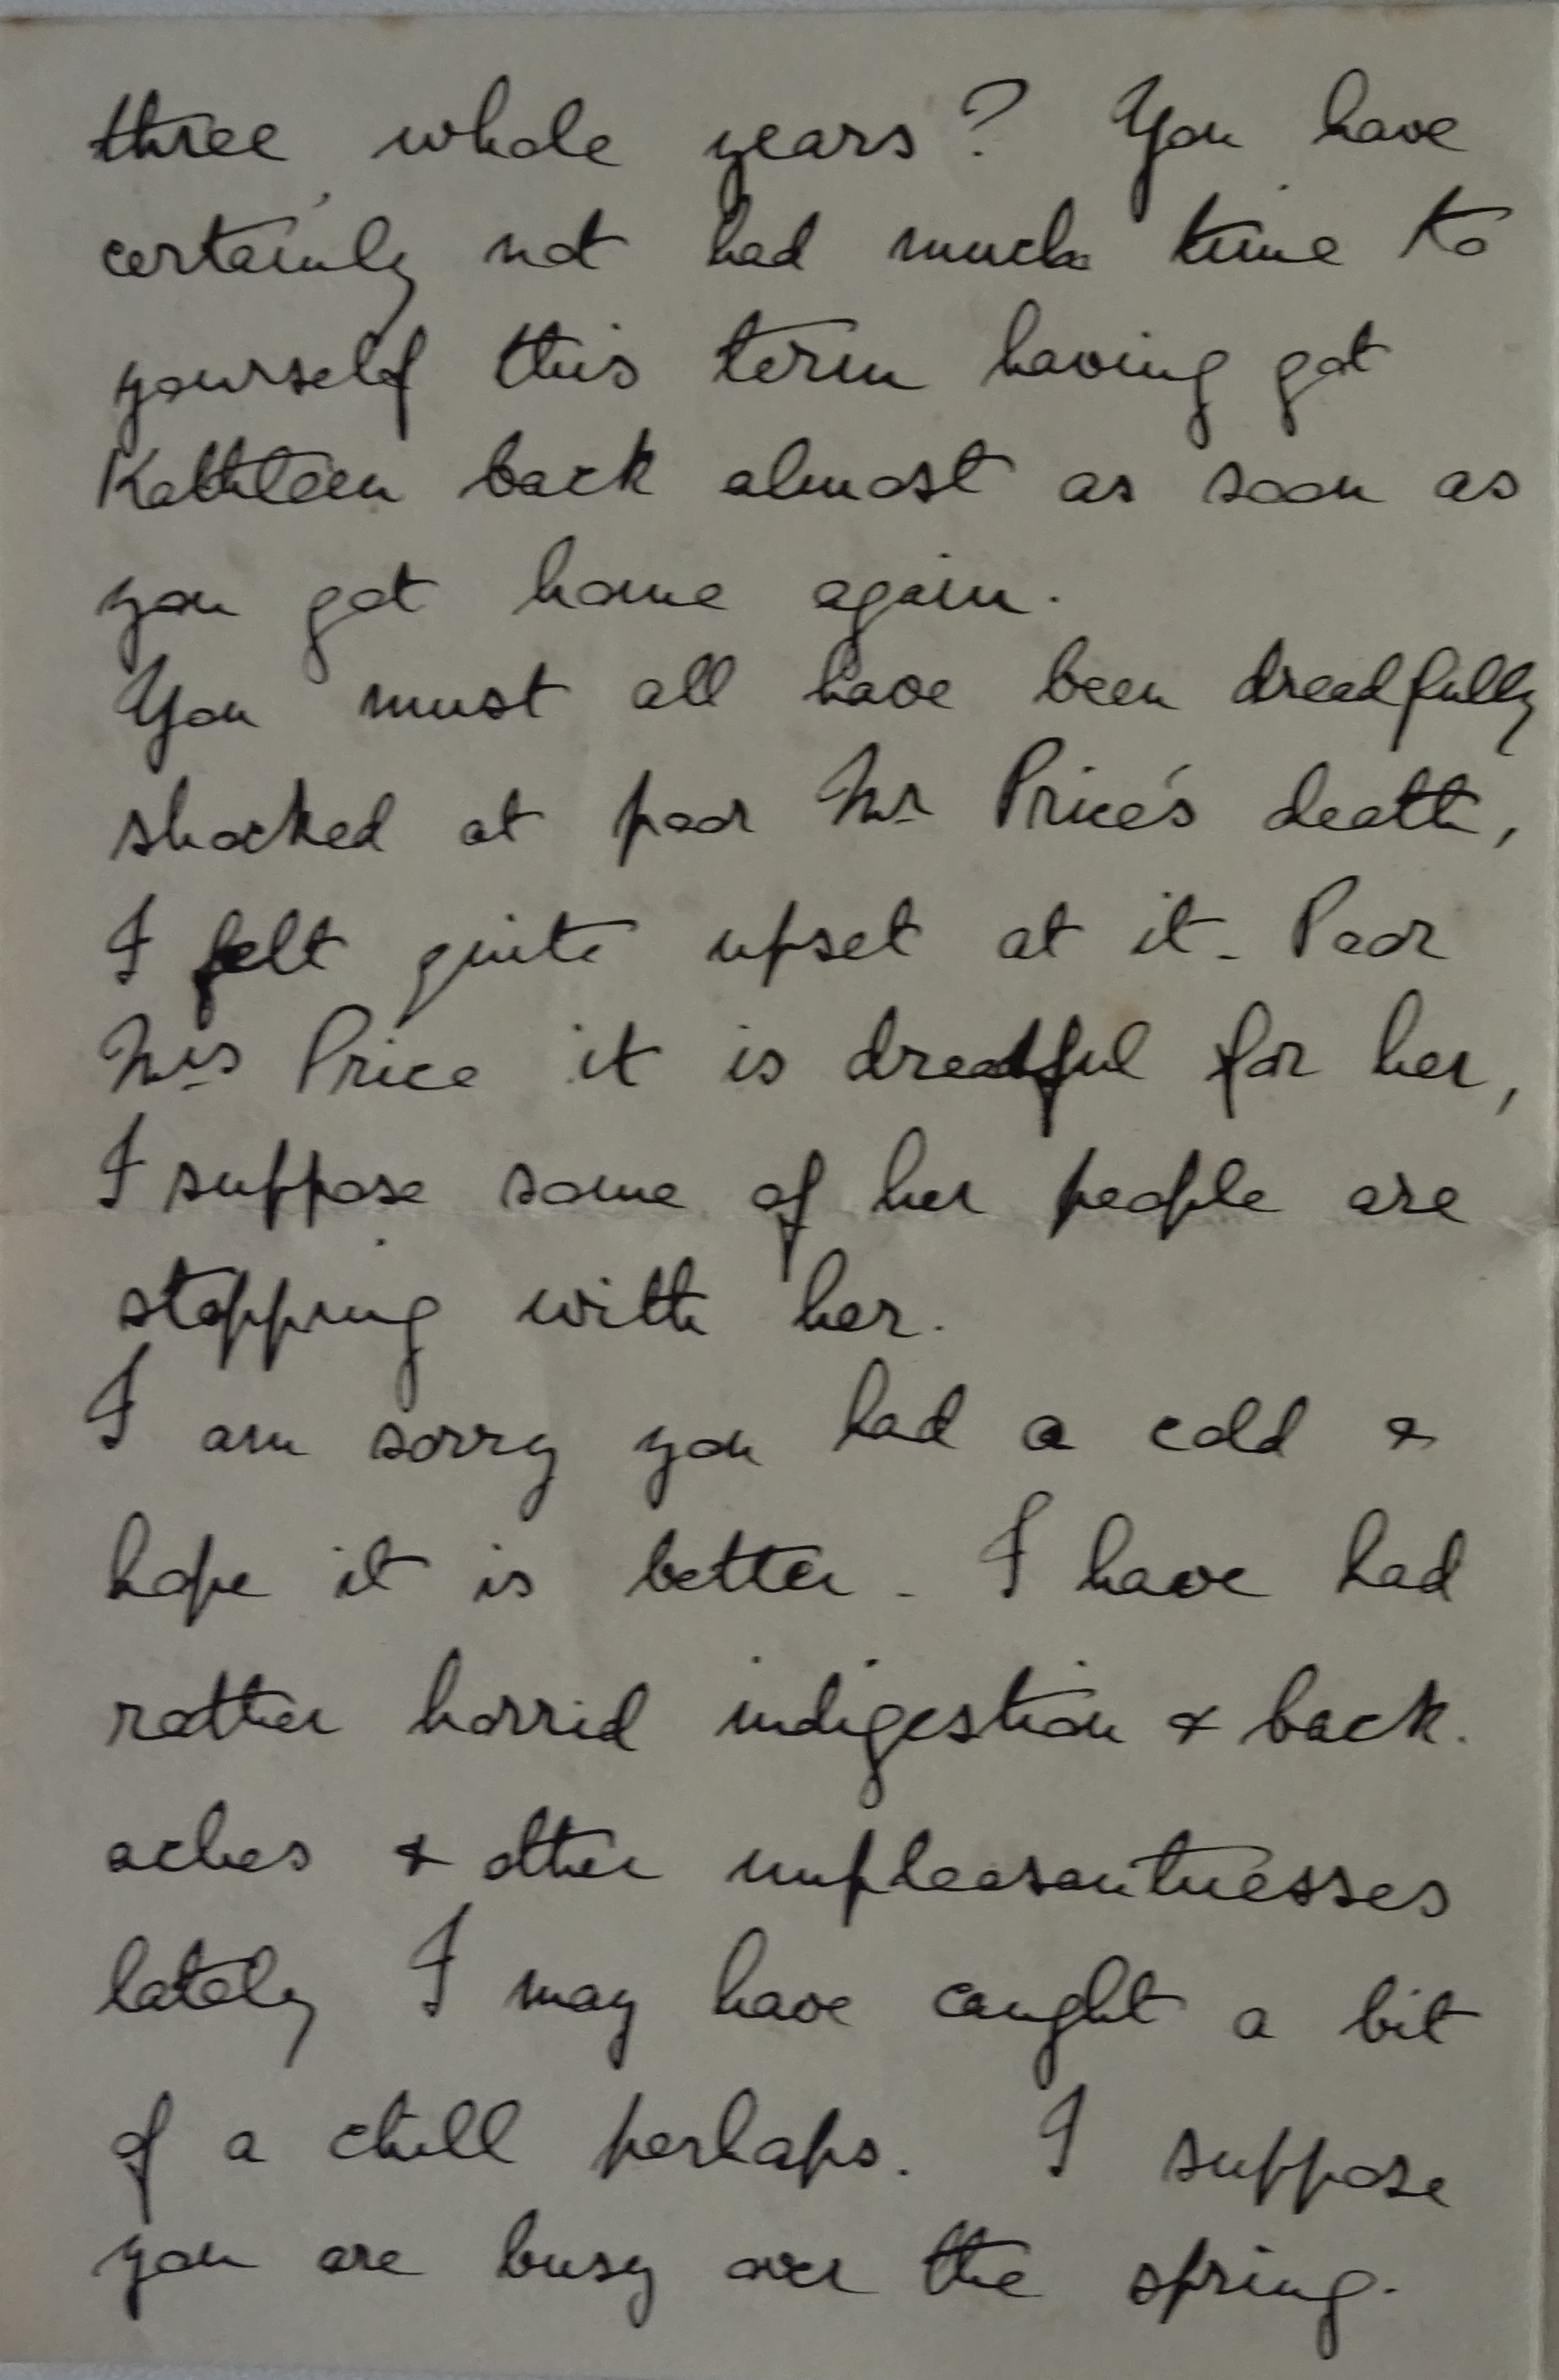 three whole years? You have
certainly not had much time to
yourself this term having got
Kathleen back almost as soon as
you got home again.
You must all have been dreadfully
shocked at poor Mr Price's death,
I felt quite upset at it. Poor
Mrs Price it is dreadful for her,
I suppose some of her people are
stopping with her.
I am sorry you had a cold &
hope it is better. I have had
rather horrid indigestion & back-
aches & other unpleasantnesses
lately I may have caught a bit
of a chill perhaps. I suppose
you are busy over the spring-